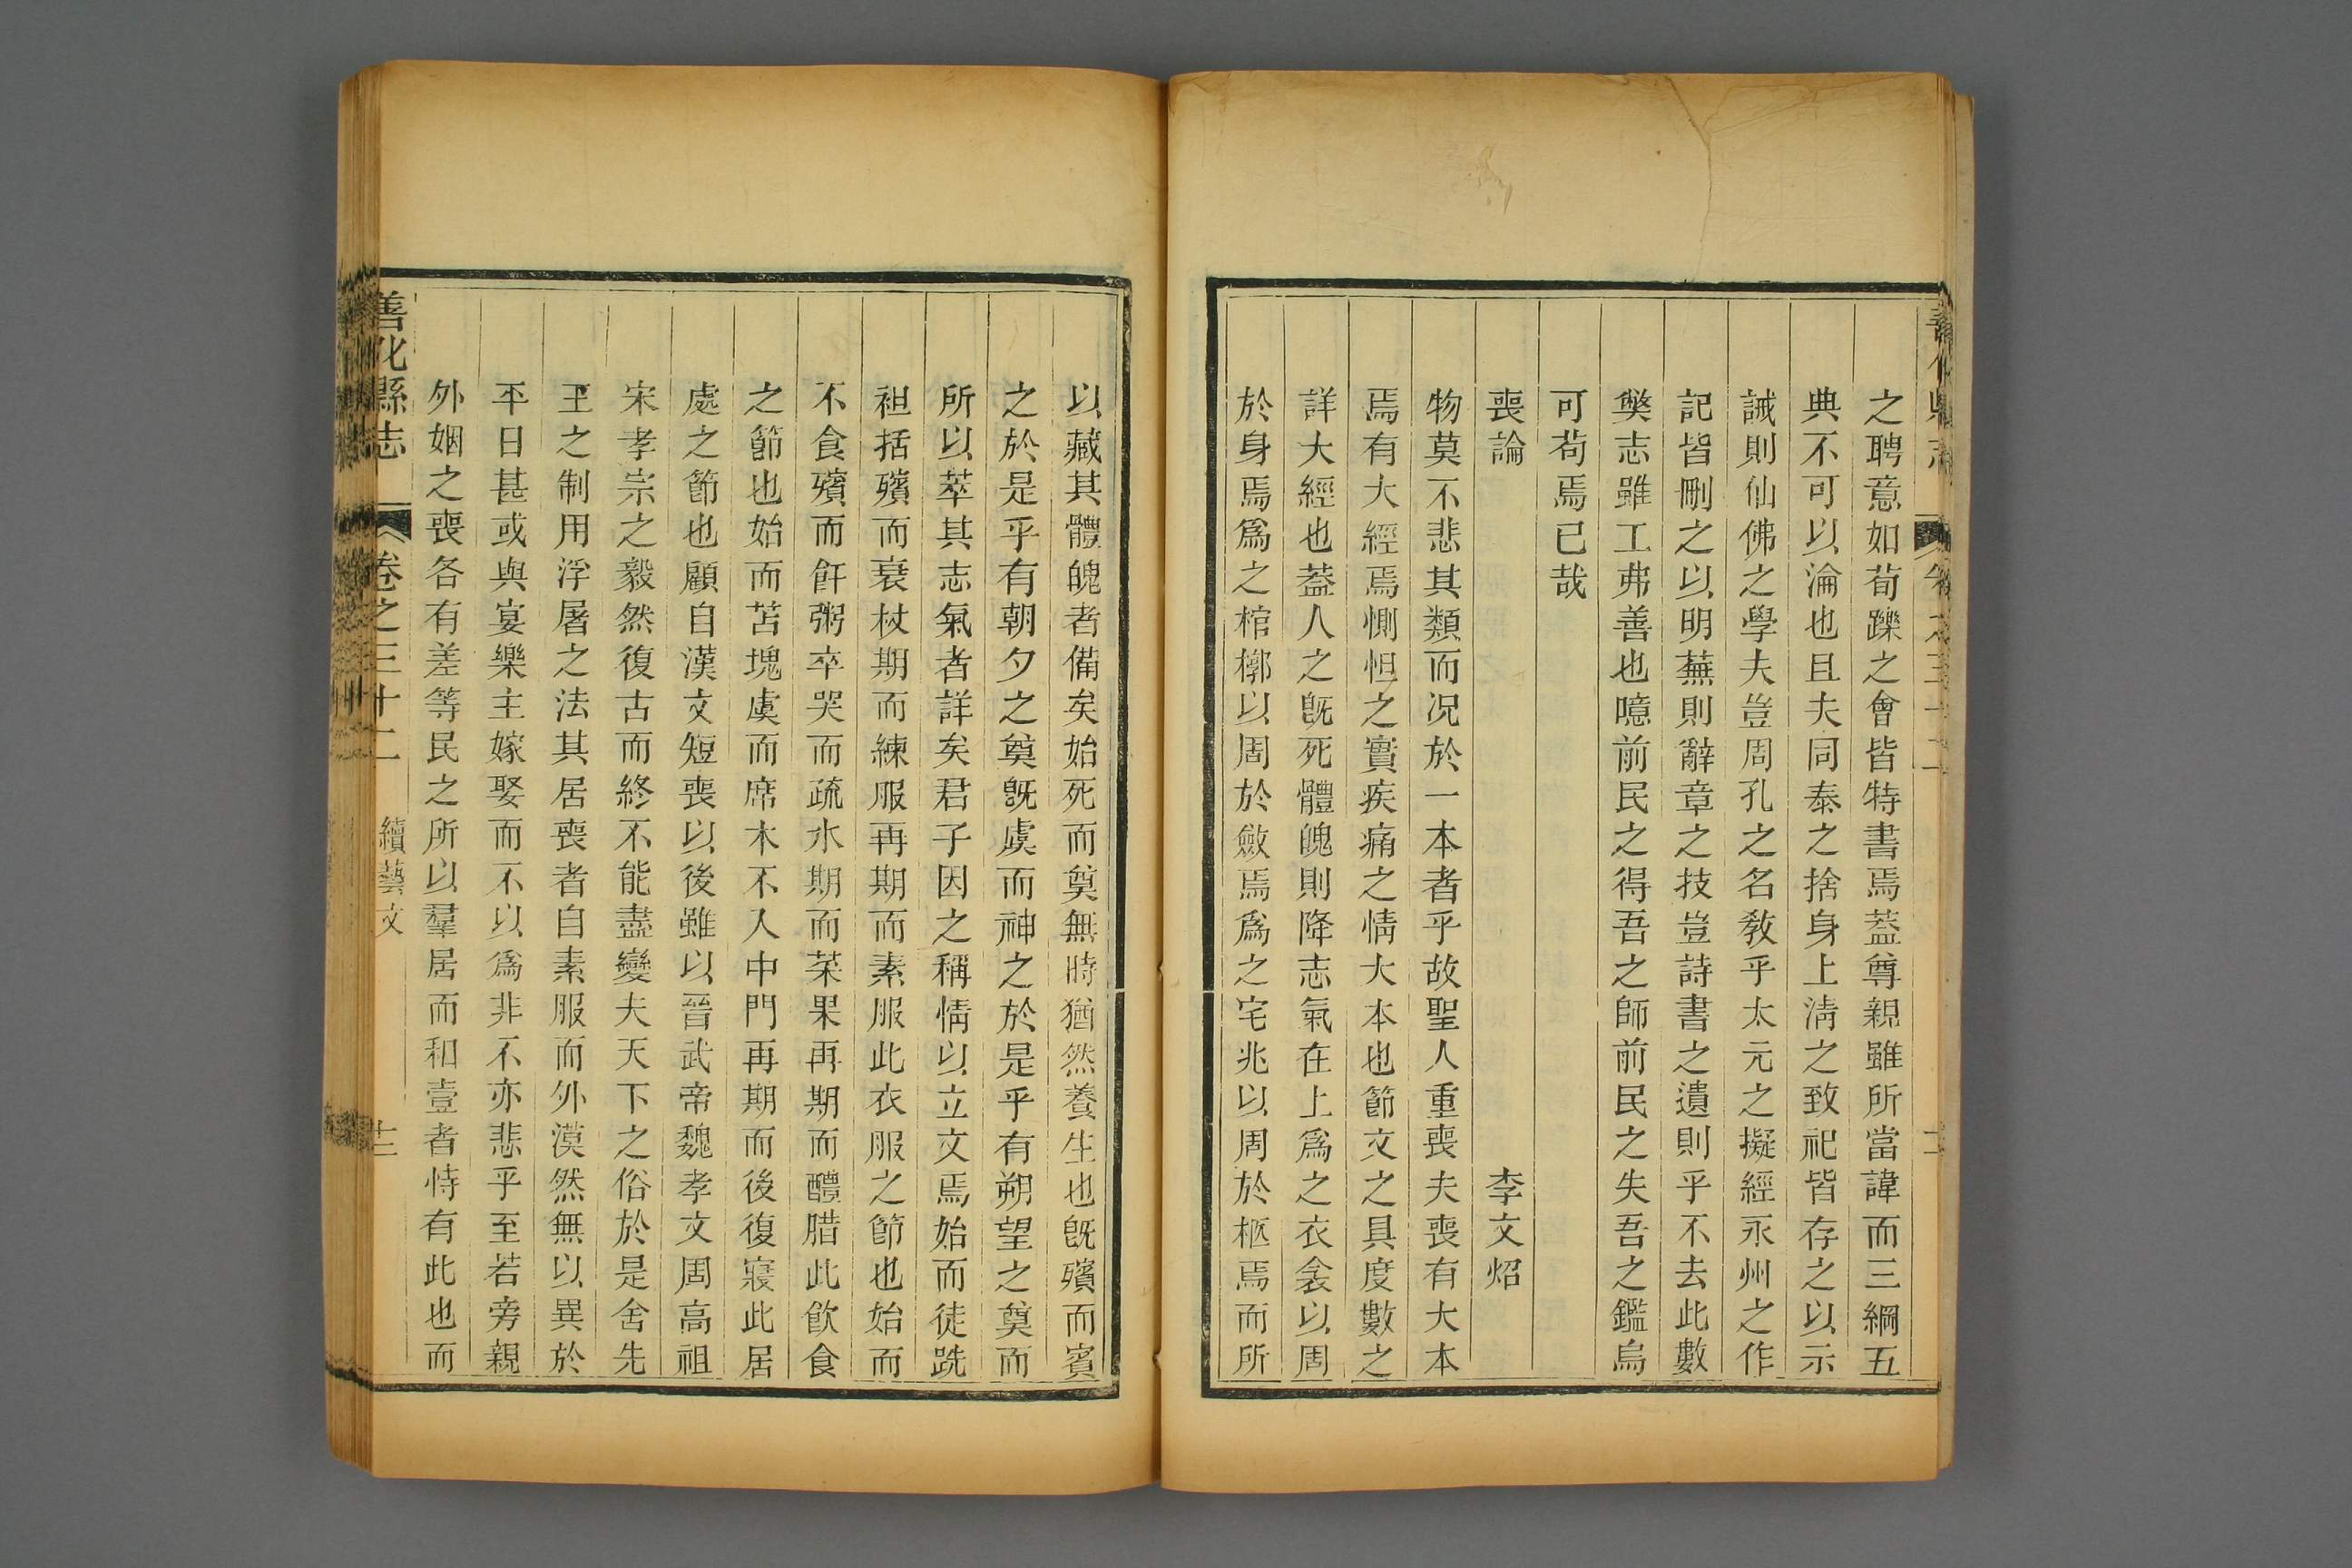 之聘意如荀躒之會皆特書焉葢尊親雖所當諱而三綱五
典不可以淪也且夫同泰之捨身上淸之致祀皆存之以示
誡則仙佛之學夫豈周孔之名敎乎太元之擬經永州之作
記皆刪之以明蕪則辭章之技豈詩書之遺則乎不去此數
獘志雖工弗善也噫前民之得吾之師前民之失吾之鑑烏
可苟焉已哉
喪論　李文炤
物莫不悲其類而況於一本者乎故聖人重喪夫喪有大本
焉有大經焉惻怛之實疾痛之情大本也節文之具度數之
詳大經也葢人之旣死體魄則降志氣在上爲之衣衾以周
於身焉爲之棺槨以周於斂焉爲之宅兆以周於柩焉而所
以藏其體魄者備矣始死而奠無時猶然養生也旣殯而賓
之於是乎有朝夕之奠旣虞而神之於是乎有朔望之奠而
所以萃其志氣者詳矣君子因之稱情以立文焉始而徒跣
袒括殯而衰杖期而練服再期而素服此衣服之節也始而
不食殯而飦粥卒哭而疏水期而菜果再期而醴腊此飮食
之節也始而苫塊虞而席木不入中門再期而後復寢此居
處之節也顧自漢文短喪以後雖以晉武帝魏孝文周高祖
宋孝宗之毅然復古而終不能盡變夫天下之俗於是舍先
王之制用浮屠之法其居喪者自素服而外漠然無以異於
平日甚或與宴樂主嫁娶而不以爲非不亦悲乎至若旁親
外姻之喪各有差等民之所以羣居而和壹者恃有此也而
善化縣志　卷之三十二　續藝文　十三